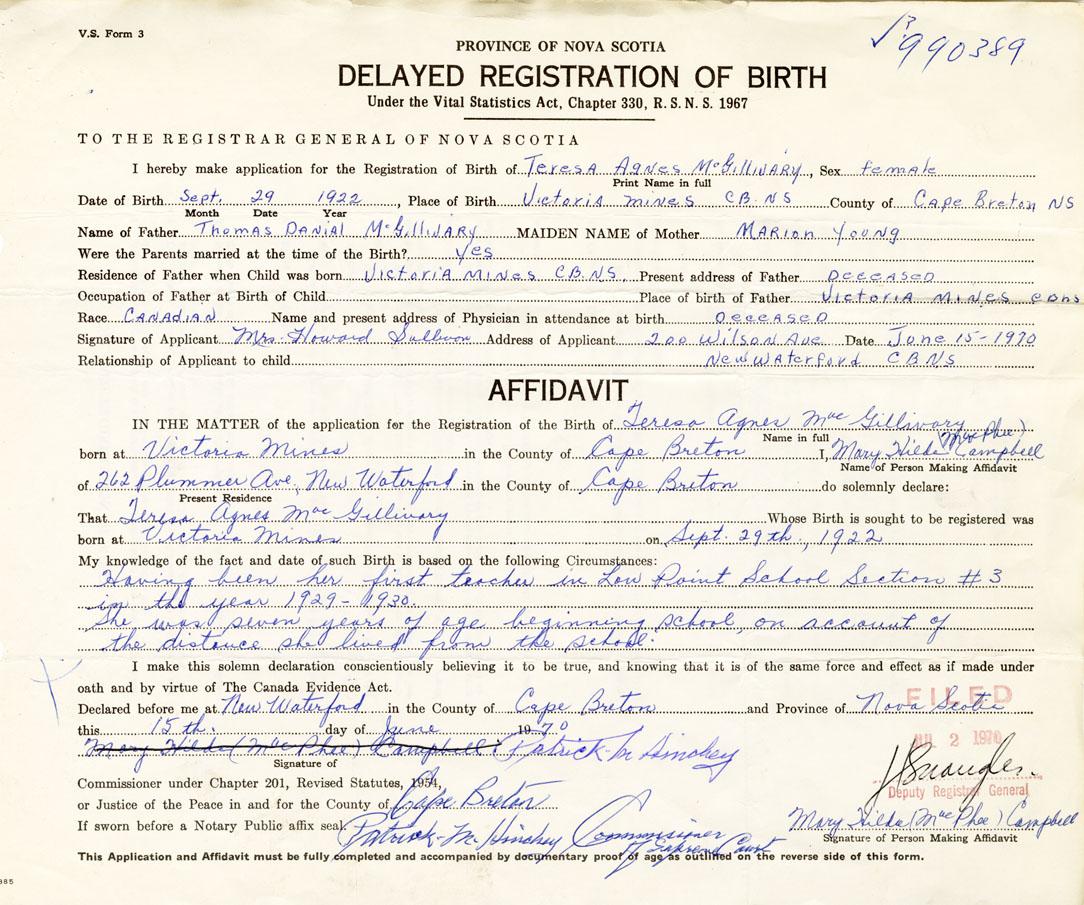 V.S. Form 3
990389
PROVINCE OF NOVA SCOTIA
DELAYED REGISTRATION OF BIRTH
Under the Vital Statistics Act, Chapter 330, R. S. N. S. 1967
TO THE REGISTRAR GENERAL OF NOVA SCOTIA
I hereby make application for the Registration of Birth of Teresa Agnes McGillivary, Sex female
Print Name in full
Date of Birth Sept. 29 1922, Place of Birth Victoria Mines C.B. NS County of Cape Breton NS
Month Date Year
Name of Father Thomas Danial McGillivary MAIDEN NAME of Mother Marion Young
Were the Parents married at the time of the Birth? Yes
Residence of Father when Child was born Victoria Mines C.B.N.S. Present address of Father Deceased
Occupation of Father at Birth of Child Place of birth of Father Victoria Mines CBNS
Race Canadian Name and present address of Physician in attendance at birth Deceased
Signature of Applicant Mrs. Howard Sullivan Address of Applicant 200 Wilson Ave Date June 15-1970
Relationship of Applicant to child New Waterford C.B.N.S
AFFIDAVIT
IN THE MATTER of the application for the Registration of the Birth of Teresa Agnes MacGillivary
Name in full
born at Victoria Mines in the County of Cape Breton I, Mary Hilda (MacPhee) Campbell
Name of Person Making Affidavit
of 262 Plummer Ave, New Waterford in the County of Cape Breton do solemnly declare:
Present Residence
That Teresa Agnes MacGillivary Whose Birth is sought to be registered was
born at Victoria Mines on Sept. 29th., 1922
My knowledge of the fact and date of such Birth is based on the following Circumstances:
Having been her first teacher in Low Point School Section #3
in the year 1929-1930.
She was seven years of age beginning school, on account of
the distance she lived from the school.
I make this solemn declaration conscientiously believing it to be true, and knowing that it is of the same force and effect as if made under
oath and by virtue of The Canada Evidence Act.
FILED
Declared before me at New Waterford in the County of Cape Breton and Province of Nova Scotia
this 15th. day of June 1970
JUL 2 1970
Mary Hilda (MacPhee) Campbell Patrick M Hinchey
Signature of
Commissioner under Chapter 201, Revised Statutes, 1954,
Deputy Registrar General
or Justice of the Peace in and for the County of Cape Breton
Mary Hilda (MacPhee) Campbell
If sworn before a Notary Public affix seal Patrick M. Hinchey Commissioner
of Supreme Court
Signature of Person Making Affidavit
This Application and Affidavit must be fully completed and accompanied by documentary proof of age as outlined on the reverse side of this form.
885